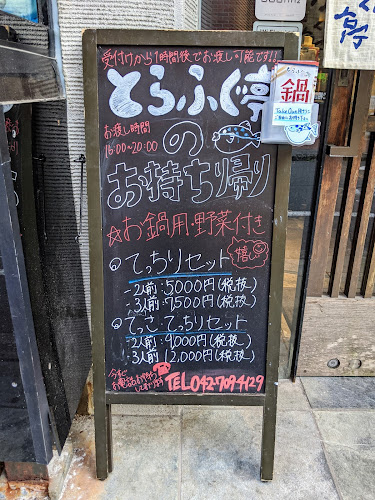 受付けから1時間後でお渡し可能です!!
とらふぐ亭
お渡し時間
16:00~20:00
の
お持ち帰り
☆お鍋用・野菜付き
嬉し
てっちりセット
-2人前:5000円(税抜)
-3人前:7500円(税抜)
てっさ・てっちりセット
-2人前:9000円(税抜)
3人前 12,000円(税抜)
TEL042-709-4129
とらふぐ亭
鍋
Take Out
亭